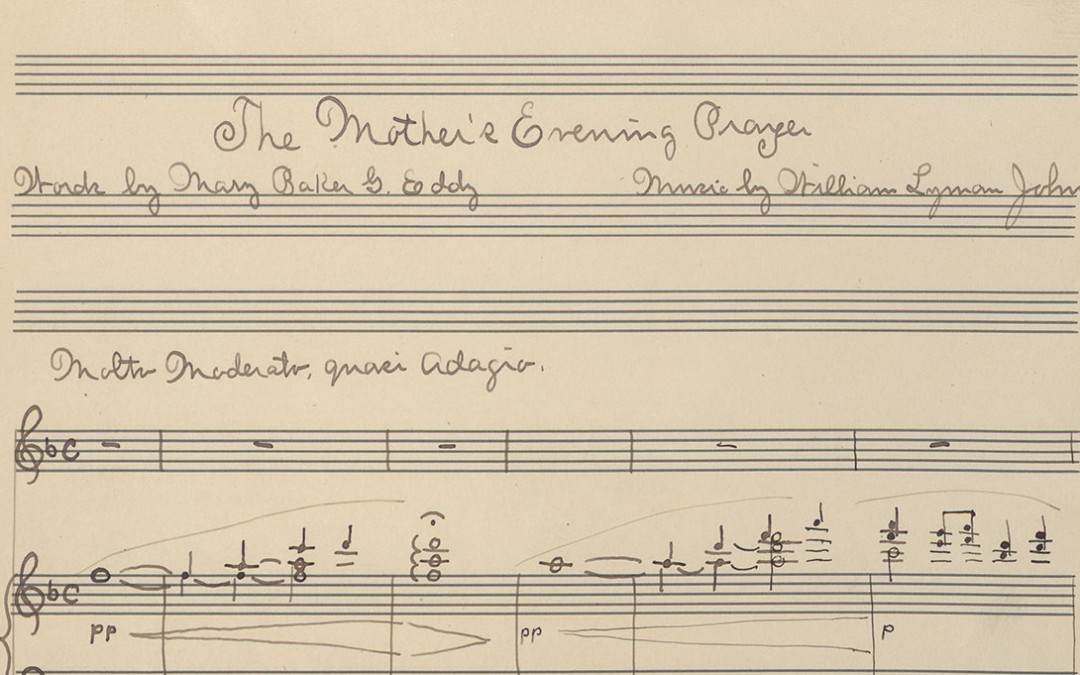 The Mother's Evening Prayer
Words by Mary Baker G. Eddy Music by William Lyman John
Molto Moderato, quasi Adagio.
pp pp p